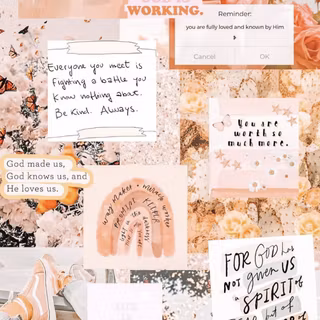 GOD IS
WORKING.
Reminder:
you are fully loved and known by Him
Cancel
OK
Everyone you meet is
fighting a battle you
know nothing about.
Be Kind. Always.
You are
worth so
much more.
God made us,
God knows us, and
He loves us.
way maker • miracle worker
promise keeper
light in the darkness
FOR GOD has
not given US
a SPIRIT of